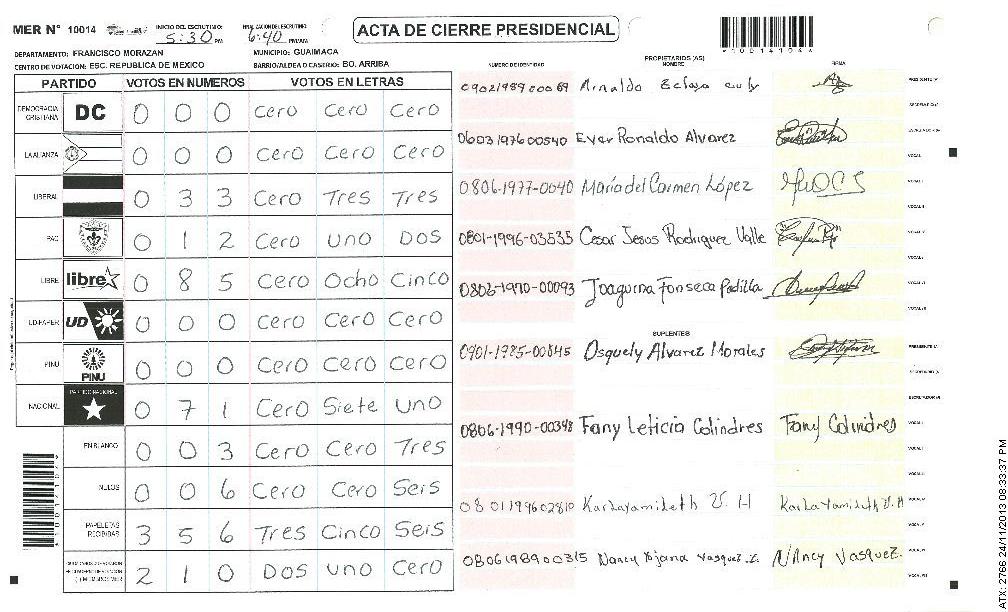 MER N° 10014 INICIO DEL ESCRUTINIO: 5:30 PM FINALIZACION DEL ESCRUTINIO: 6:40 PM/AM ACTA DE CIERRE PRESIDENCIAL
DEPARTAMENTO: FRANCISCO MORAZAN MUNICIPIO: GUAIMACA
CENTRO DE VOTACION: ESC. REPUBLICA DE MEXICO BARRIO/ALDEA O CASERIO: BO. ARRIBA
PARTIDO VOTOS EN NUMEROS VOTOS EN LETRAS
DEMOCRACIA CRISTIANA DC 0 0 0 Cero Cero Cero
LA ALIANZA 0 0 0 Cero Cero Cero
LIBERAL 0 3 3 Cero Tres Tres
PAC 0 1 2 Cero Uno Dos
LIBRE libre 0 8 5 Cero Ocho Cinco
UD-FAPER UD 0 0 0 Cero Cero Cero
PINU PINU 0 0 0 Cero Cero Cero
NACIONAL PARTIDO NACIONAL 0 7 1 Cero Siete Uno
EN BLANCO 0 0 3 Cero Cero Tres
NULOS 0 0 6 Cero Cero Seis
PAPELETAS RECIBIDAS 3 5 6 Tres Cinco Seis
2 1 0 Dos Uno Cero
NUMERO DE IDENTIDAD PROPIETARIOS (AS) FIRMA
0902198900069 Arnaldo
0603197600540 Ever Ronaldo Alvarez
0806-1977-0040 María del Carmen López
0801-1996-03535 Cesar Jesus Rodriguez Valle
0806-1970-00093 Joaquina Fonseca Padilla
SUPLENTES
0901-1985-00845 Osquely Alvarez Morales
0806-1990-00398 Fany Leticia Colindres Fany Colindres
0801199602810 Karla Yamileth V. H Karla Yamileth V. H
0806198900315 Nancy Yojana Vasquez. Z. Nancy Vasquez.
ATX: 2766 24/11/2013 08:33:37 PM